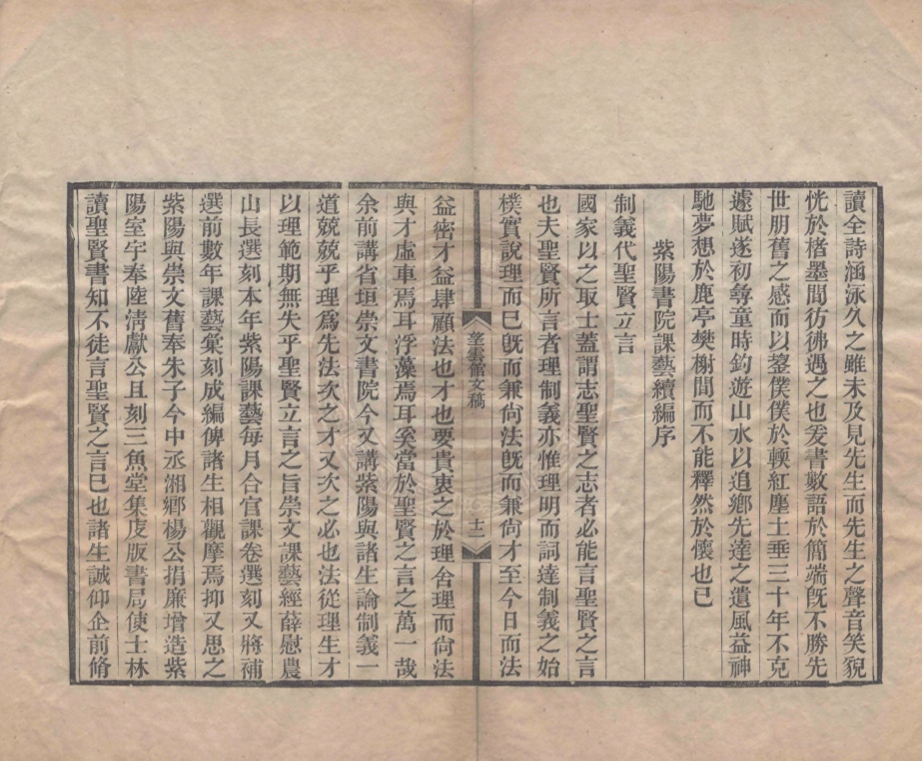 讀全詩涵泳久之雖未及見先生而先生之聲音笑貌
恍於楮墨間彷彿遇之也爰書數語於簡端旣不勝先
世朋舊之感而以蹇僕僕於輭紅塵土垂三十年不克
遽賦遂初尋童時釣遊山水以追鄉先達之遺風益神
馳夢想於鹿亭樊榭間而不能釋然於懷也已
紫陽書院課藝續編序
制義代聖賢立言
國家以之取士蓋謂志聖賢之志者必能言聖賢之言
也夫聖賢所言者理制義亦惟理明而詞達制義之始
樸實說理而已旣而兼尙法旣而兼尙才至今日而法
文稿
十二
益密才益肆顧法也才也要貴衷之於理舍理而尙法
與才虛車焉耳浮藻焉耳奚當於聖賢之言之萬一哉
余前講省垣崇文書院今又講紫陽與諸生論制義一
道兢兢乎理爲先法次之才又次之必也法從理生才
以理範期無失乎聖賢立言之旨崇文課藝經薛慰農
山長選刻本年紫陽課藝每月合官課卷選刻又將補
選前數年課藝彙刻成編俾諸生相觀摩焉抑又思之
紫陽與崇文舊奉朱子今中丞湘鄉楊公捐廉增造紫
陽室宇奉陸淸獻公且刻三魚堂集庋版書局使士林
讀聖賢書知不徒言聖賢之言已也諸生誠仰企前脩